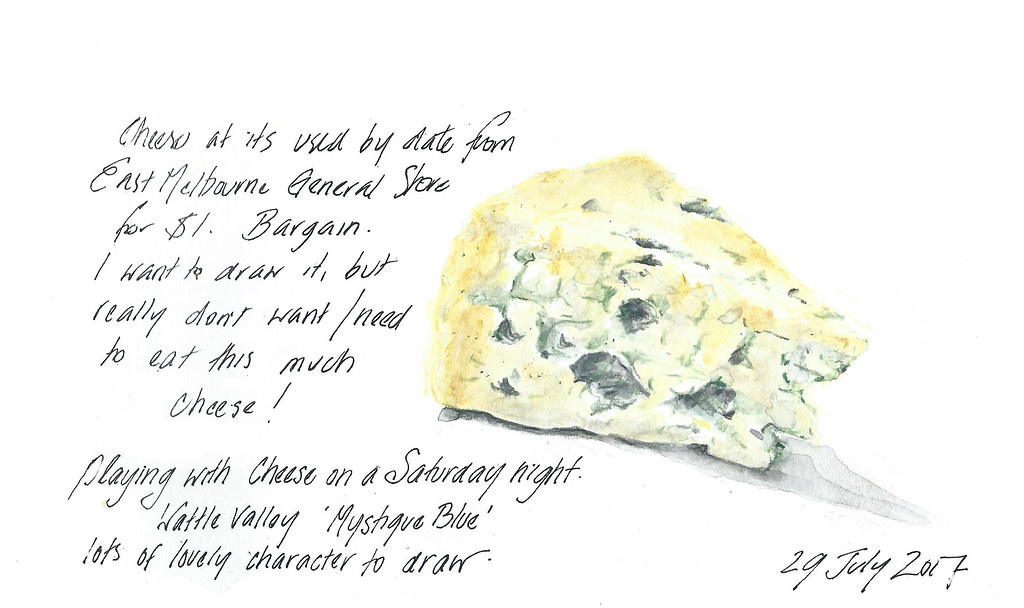 Cheese at its used by date from
East Melbourne General Store
for $1. Bargain.
I want to draw it, but
really don't want/need
to eat this much
cheese!
Playing with cheese on a Saturday night.
Wattle Valley 'Mystique Blue'
lots of lovely character to draw.
29 July 2017